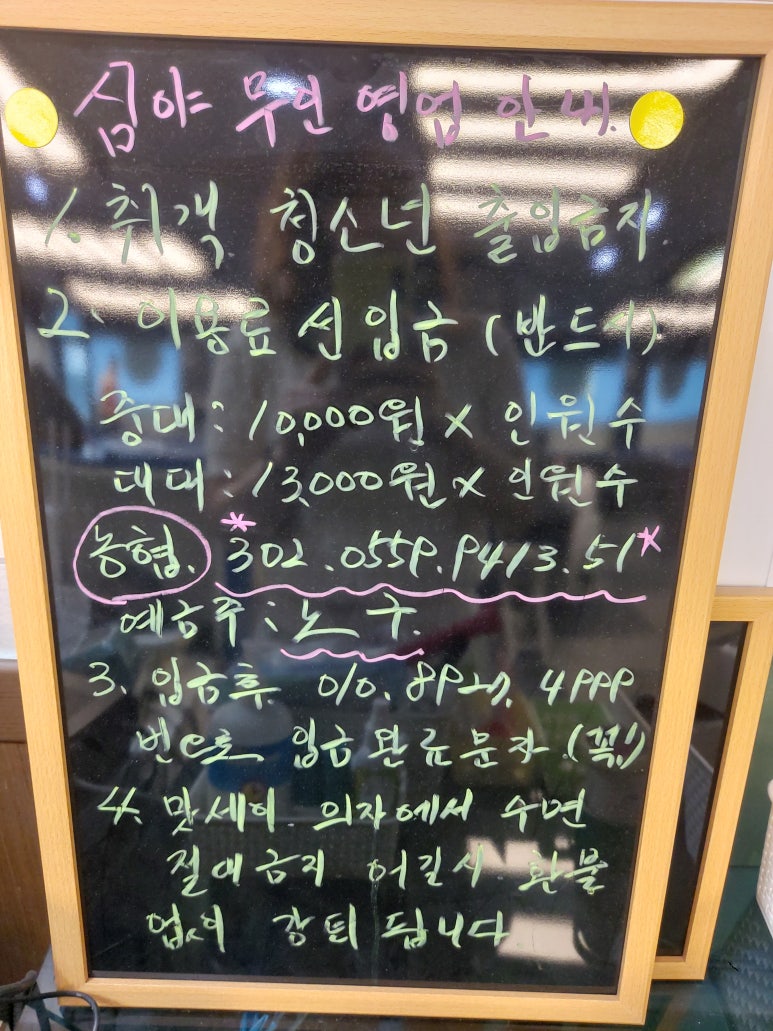 심야 무인 영업 안내.
1. 취객 청소년 출입금지.
2. 이용료 선입금 (반드시)
중대 : 10,000원 x 인원수
대대 : 13,000원 x 인원수
농협. *302.0559.9413.51*
예금주 : 노구.
3. 입금후 010. 8925. 4999
번으로 입금완료문자.(꼭!)
4. 맛세이 의자에서 수면
절대금지 어길시 환불
없이 강퇴 됩니다